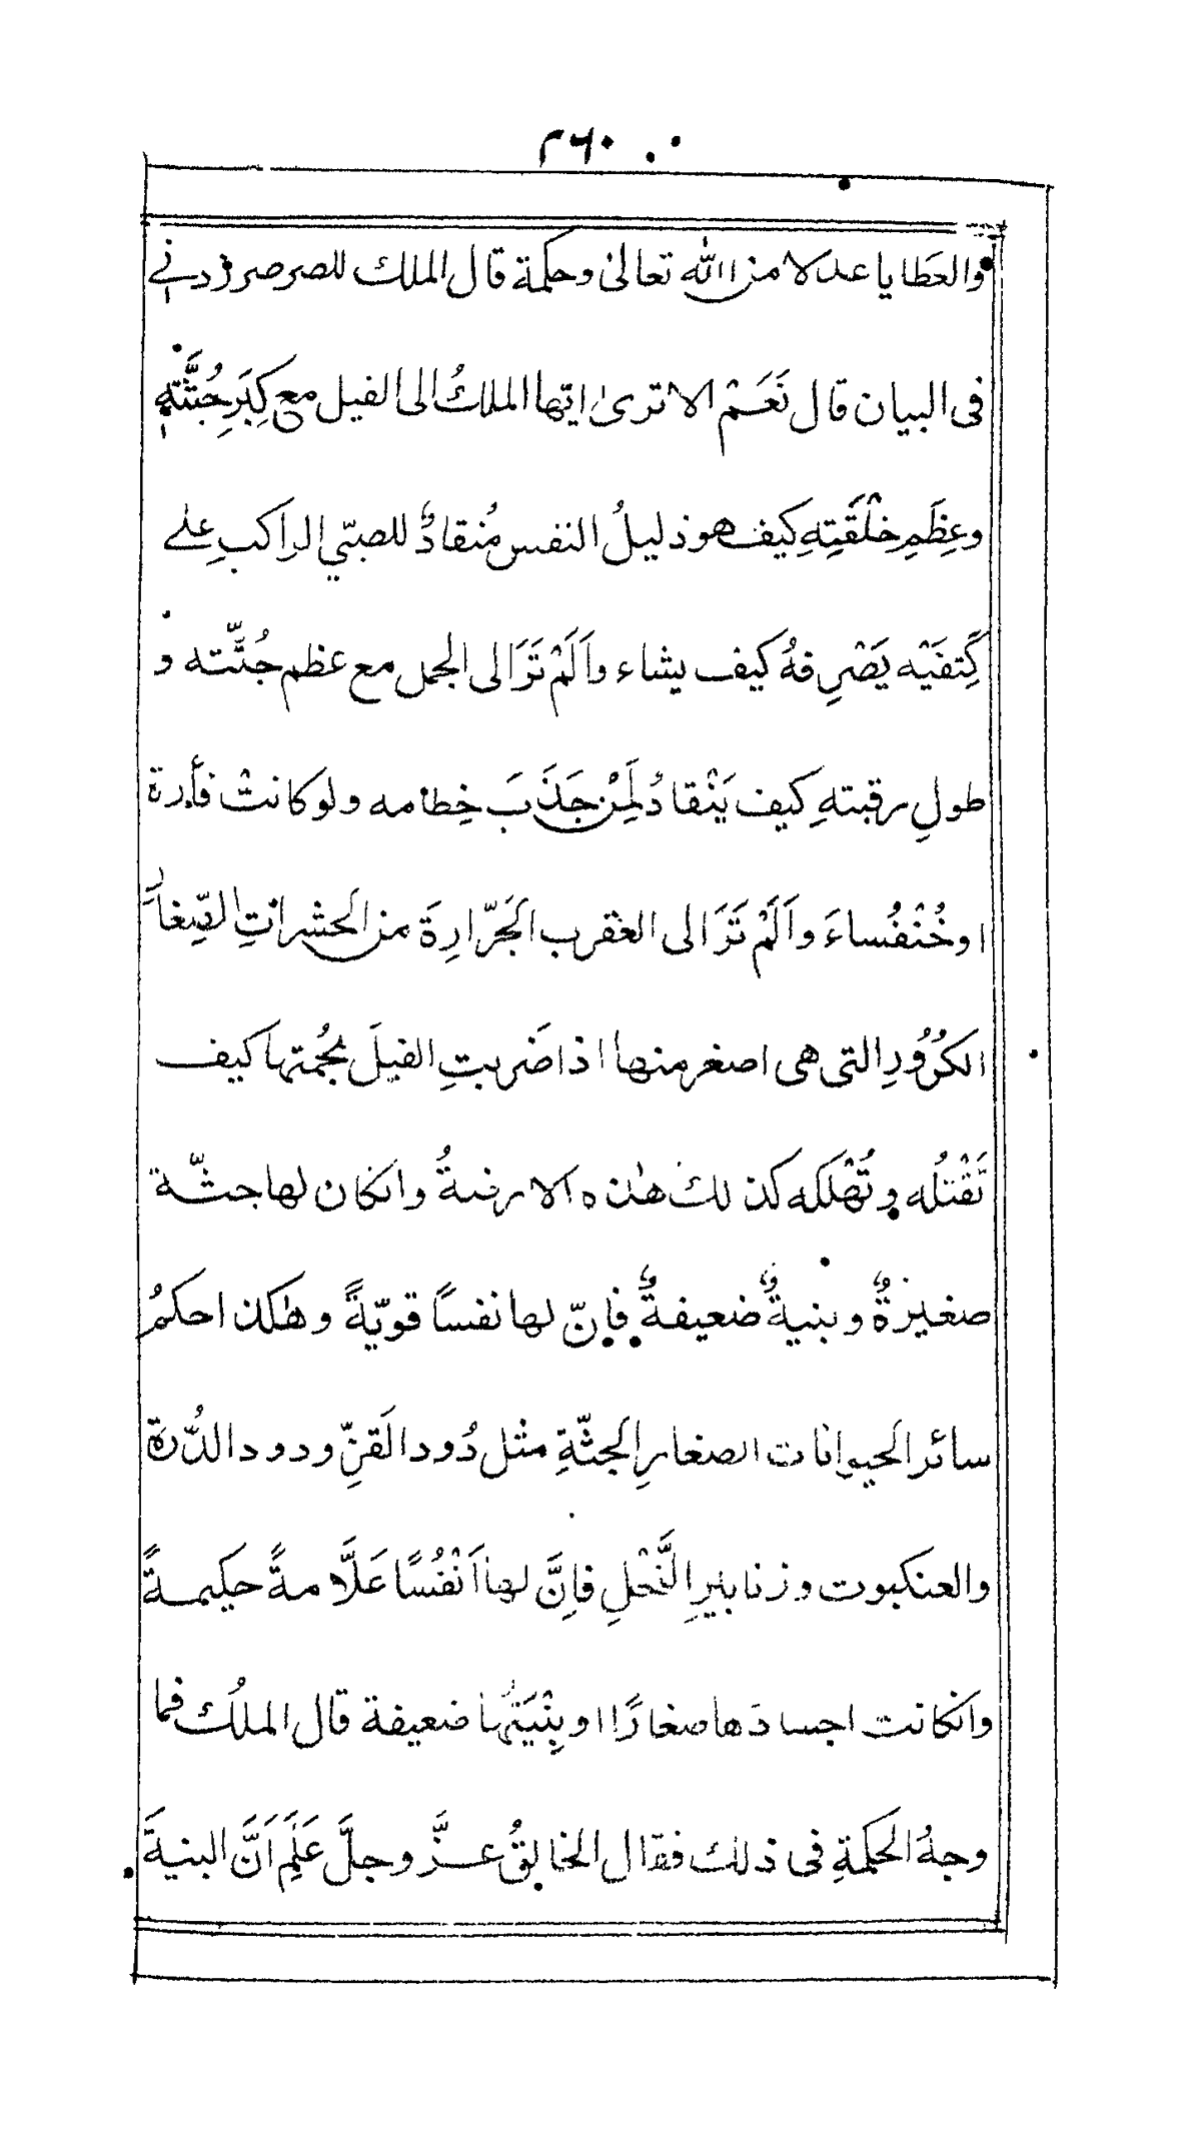 ٢٦٠
والعَطايا عدلا من الله تعالىٰ وحكمة قال الملك للصرصر زدني
فى البيان قال نَعَمْ الا ترىٰ ايّها الملكُ الى الفيل مع كِبَرِ جُثَّتهِ
وعِظَمِ خلْقَتِهِ كيف هو ذليلُ النفس مُنقادٌ للصبّيِ الراكبِ على
كَتِفَيْه يَصْرِفهُ كيف يشاء واَلَمْ تَرَ الى الجمل مع عظم جُثّته و
طولِ رقبتهِ كيف يَنْقادُ لِمَنْ جَذَبَ خِطامه ولو كانتْ فأرة
او خُنْفُساءَ واَلَمْ تَرَ الى العقرب الجَرّارِةَ من الحشراتِ الصِّغارِ
الكُرُورِ التى هى اصغر منها اذا ضَربتِ الفيلَ بحُمتها كيف
تَقْتُلُه وتُهْلكه كذلك هٰذه الارضةُ وانكان لها جثّة
صغيرةٌ وبنيةٌ ضعيفةٌ فاِنّ لها نفسًا قويّةً وهٰكذا حكمُ
سائر الحيوانات الصغارِ الجثّةِ مثل دُود القزِّ ودود الدُّرة
والعنكبوت وزنابيرِ النَّحْلِ فاِنَّ لها اَنْفُسًا عَلَّامةً حكيمةً
وانكانت اجسادَها صغارًا او بِنْيَتُها ضعيفة قال الملُك فما
وجهُ الحكمةِ فى ذلك فقال الخالقُ عزَّ وجلَّ عَلِمَ اَنَّ البنيةَ